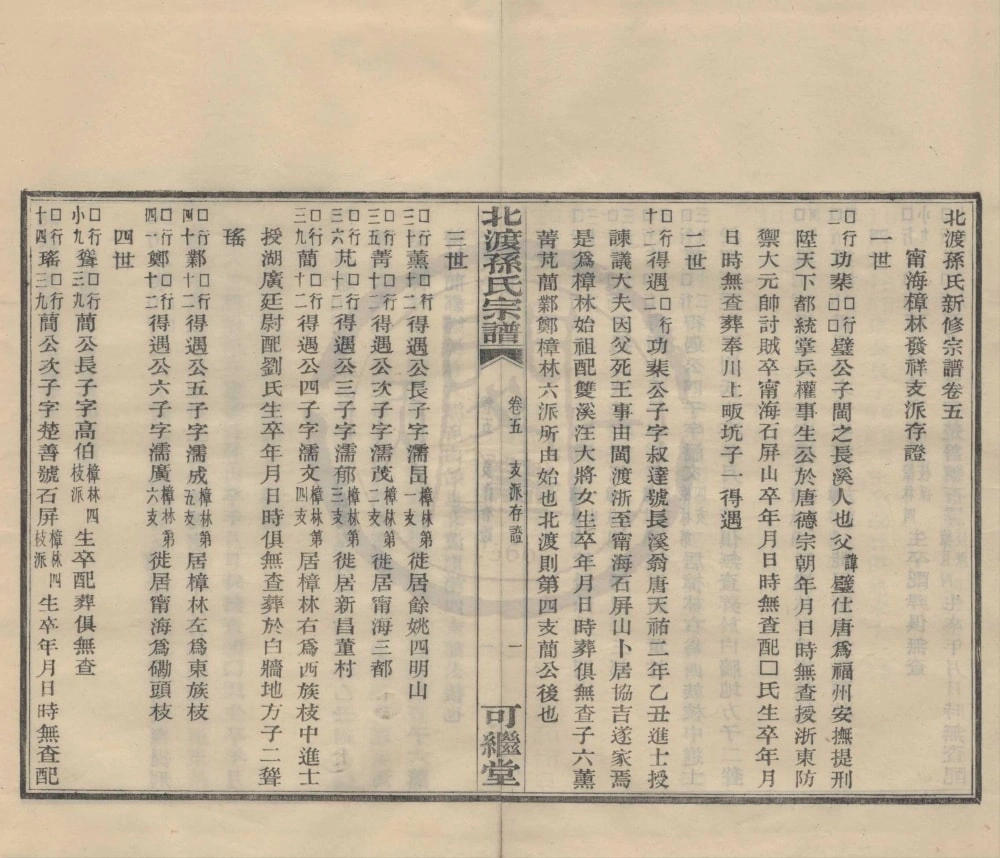 北渡孫氏新修宗譜卷五
甯海樟林發祥支派存證
一世
□行二功棐□行□璧公子閩之長溪人也父諱璧仕唐爲福州安撫提刑
陞天下都統掌兵權事生公於唐德宗朝年月日時無查授浙東防
禦大元帥討賊卒甯海石屏山卒年月日時無查配□氏生卒年月
日時無查葬奉川上畈坑子一得遇
二世
□行十二得遇□行二功棐公子字叔達號長溪翁唐天祐二年乙丑進士授
諫議大夫因父死王事由閩渡浙至甯海石屏山卜居協吉遂家焉
是爲樟林始祖配雙溪汪大將女生卒年月日時葬俱無查子六薰
菁芃蕑鄴鄭樟林六派所由始也北渡則第四支蕑公後也
北渡孫氏宗譜
卷五
支派存證
一
可繼堂
三世
□行三十薰□行十二得遇公長子字濡 樟林第一支徙居餘姚四明山
□行三五菁□行十二得遇公次子字濡茂樟林第二支徙居甯海三都
□行三六芃□行十二得遇公三子字濡郁樟林第三支徙居新昌董村
□行三九蕑□行十二得遇公四子字濡文樟林第四支居樟林右爲西族枝中進士
授湖廣廷尉配劉氏生卒年月日時俱無查葬於白牆地方子二聳
瑤
□行四十鄴□行十二得遇公五子字濡成樟林第五支居樟林左爲東族枝
□行四一鄭□行十二得遇公六子字濡廣樟林第六支徙居甯海爲磡頭枝
四世
□行小九聳□行三九蕑公長子字高伯樟林四枝派生卒配葬俱無查
□行十四瑤□行三九蕑公次子字楚善號石屏樟林四枝派生卒年月日時無查配